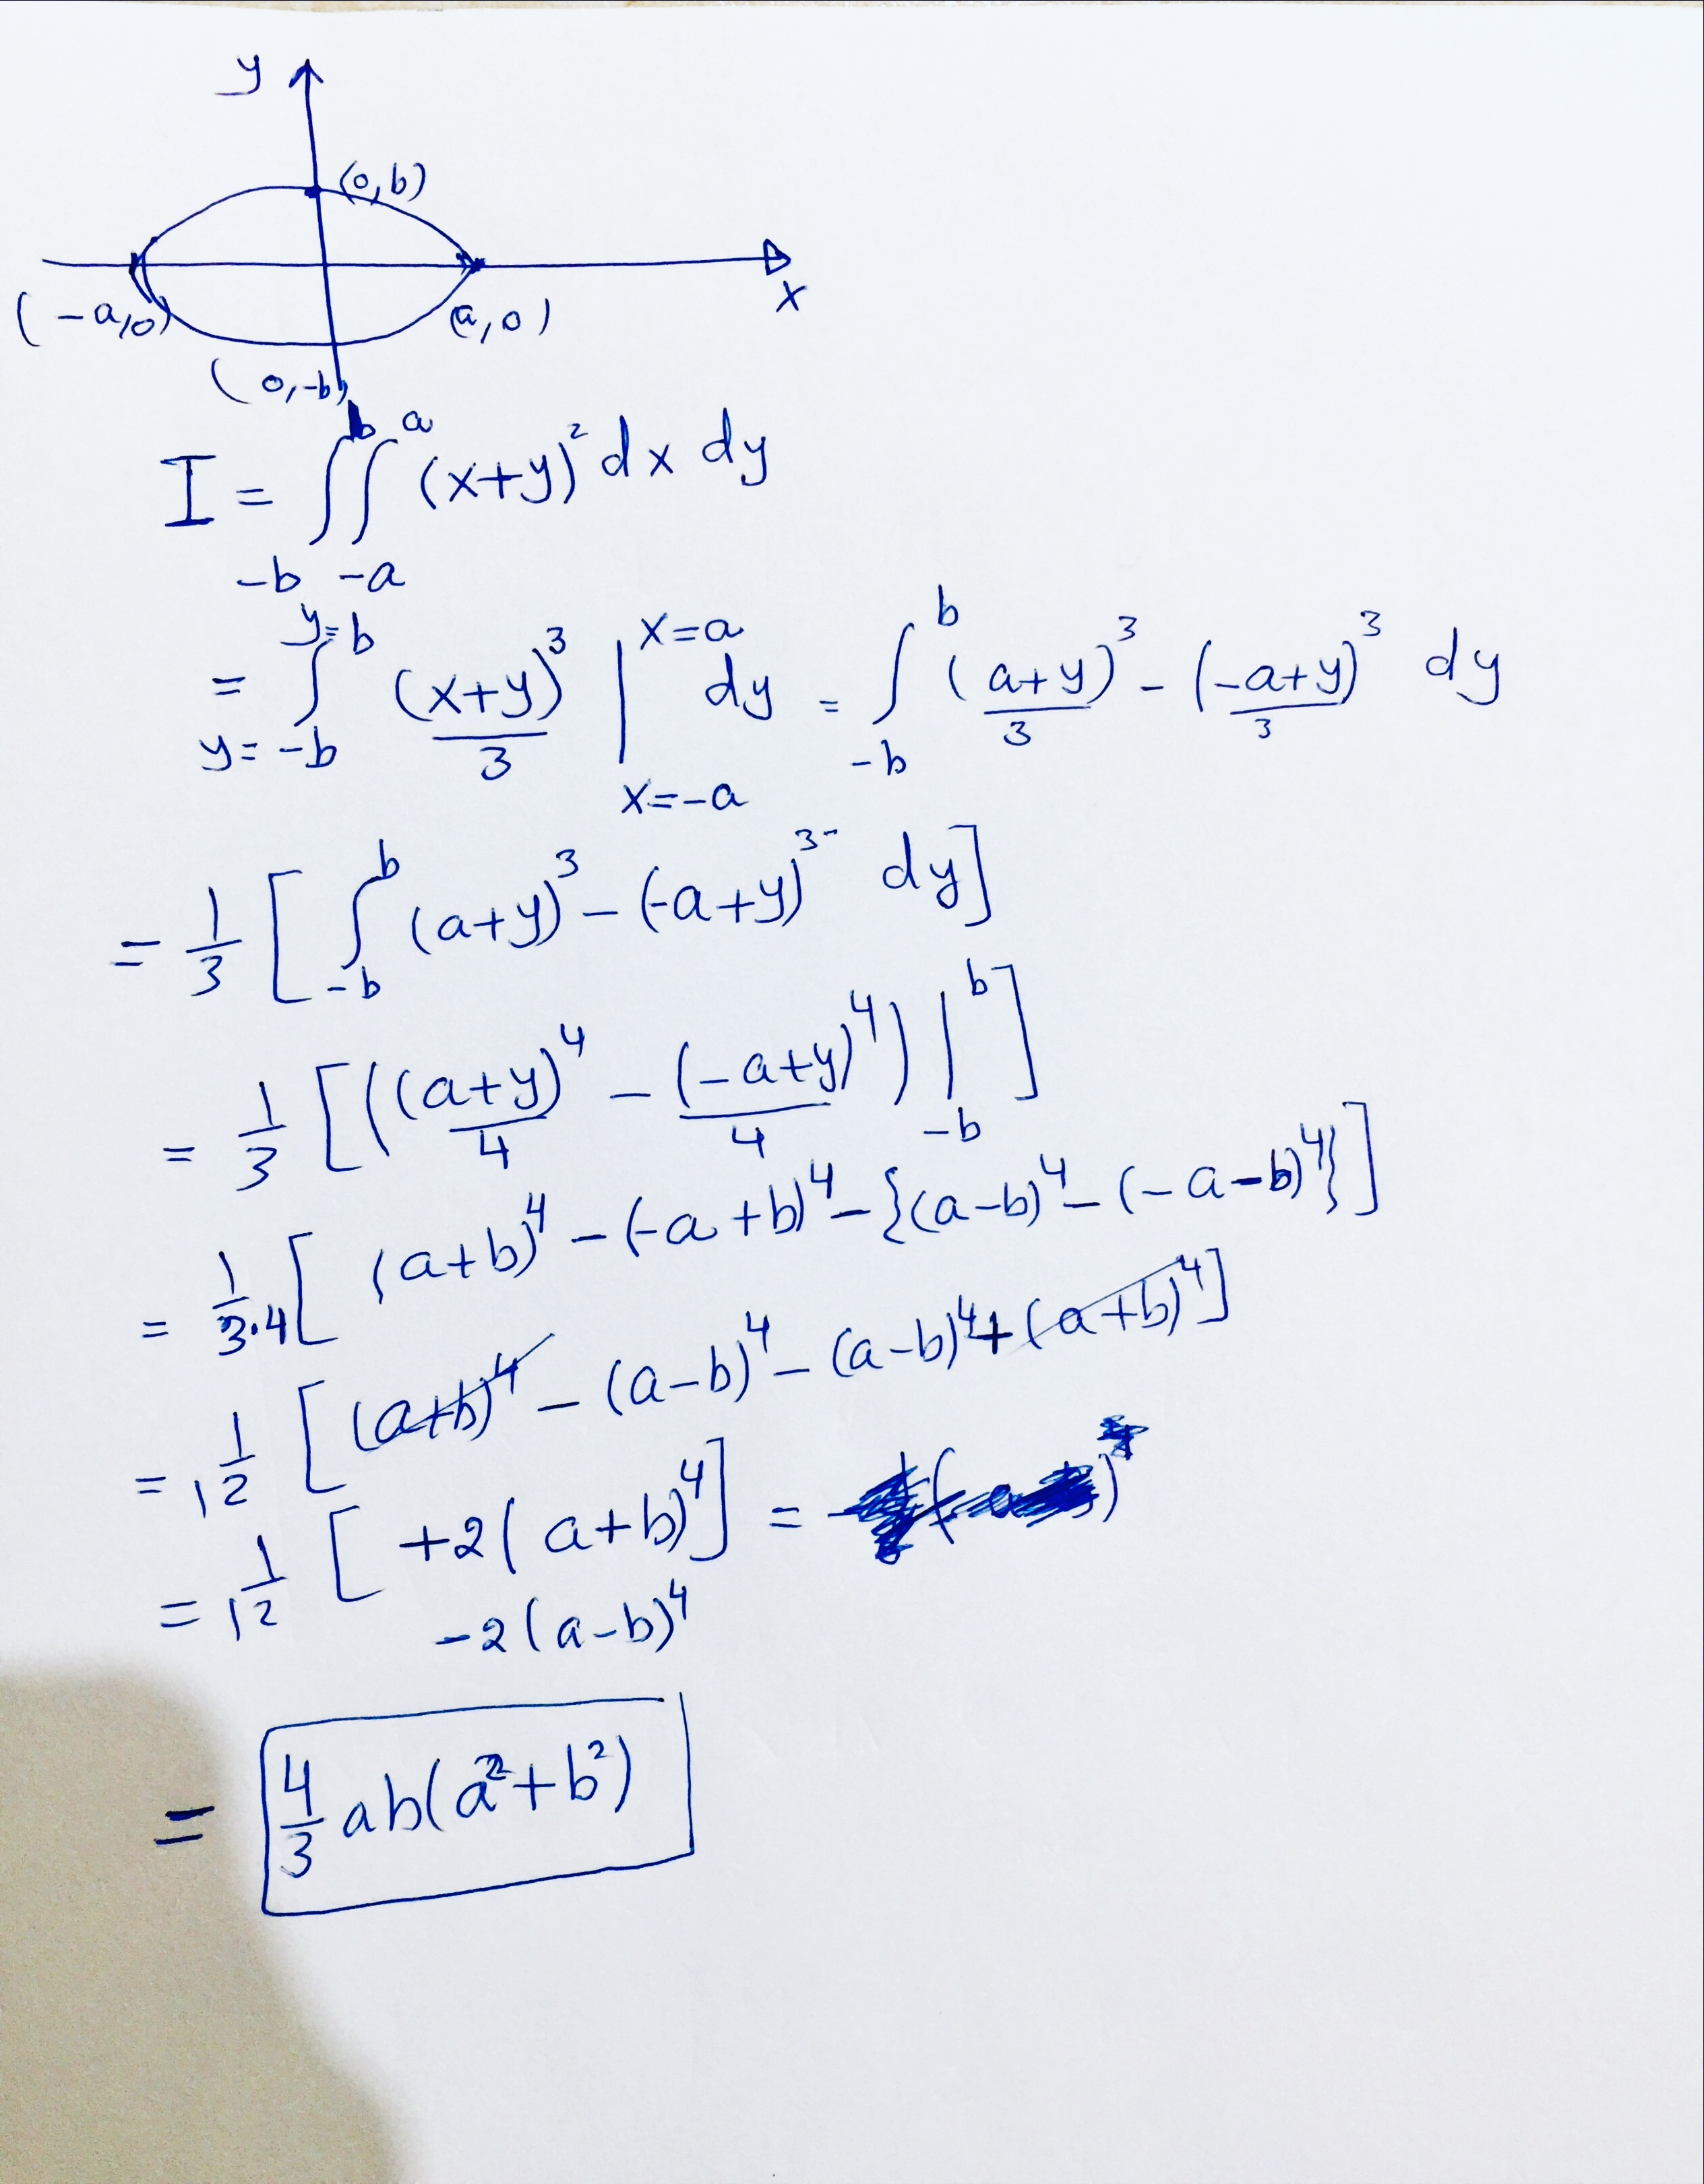 y
(0,b)
(-a,0)
(a,0)
x
(0,-b)
I = ∫_{-b}^{b} ∫_{-a}^{a} (x+y)^2 dx dy
= ∫_{y=-b}^{y=b} (x+y)^3/3 |_{x=-a}^{x=a} dy = ∫_{-b}^{b} (a+y)^3/3 - (-a+y)^3/3 dy
= 1/3 [ ∫_{-b}^{b} (a+y)^3 - (-a+y)^3 dy ]
= 1/3 [ ( (a+y)^4/4 - (-a+y)^4/4 ) |_{-b}^{b} ]
= 1/3·4 [ (a+b)^4 - (-a+b)^4 - {(a-b)^4 - (-a-b)^4} ]
= 1/12 [ (a+b)^4 - (a-b)^4 - (a-b)^4 + (a+b)^4 ]
= 1/12 [ +2(a+b)^4 ] =
-2(a-b)^4
= 4/3 ab(a^2+b^2)